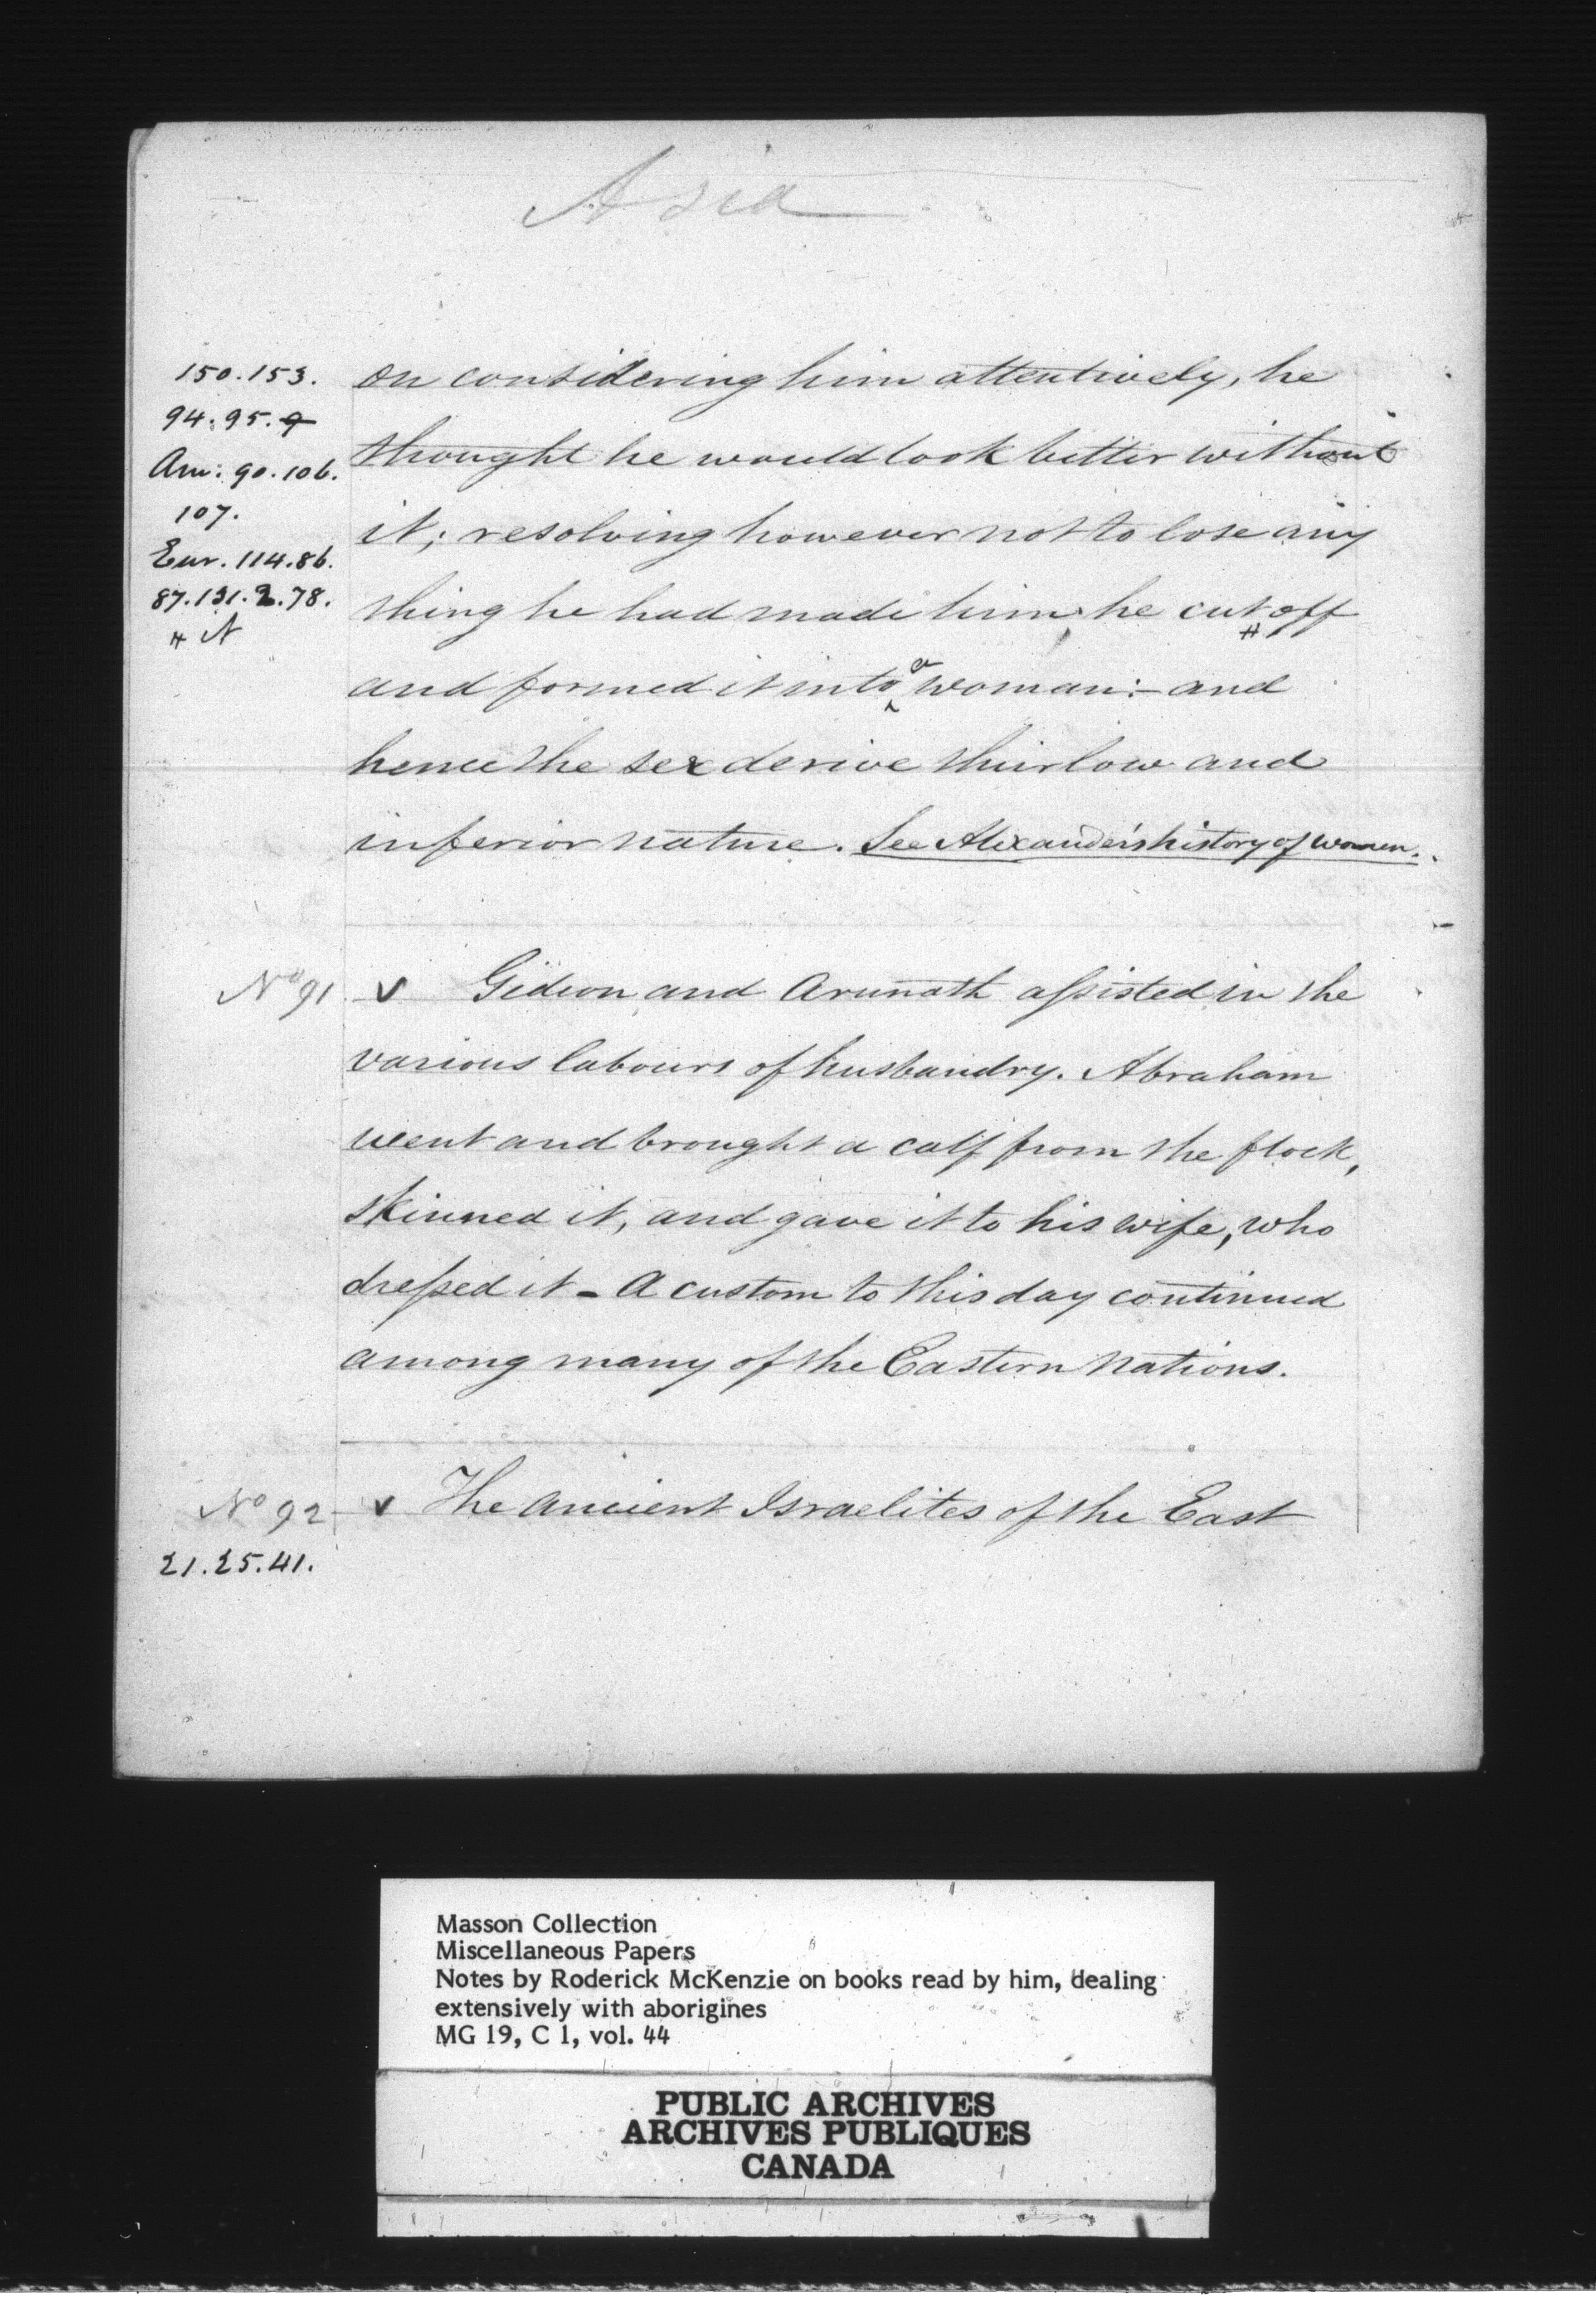 Asia
150.153.
94.95.9
Am: 90.106.
107.
Eur. 114.86.
87.131.2.78.
# N
on considering him attentively, he
thought he would look better without
it; resolving however not to lose any
thing he had made him, he cut # off
and formed it into a woman:- and
hence the sex derive thier low and
inferior nature. See Alexander's history of women.
No 91 v Gideon and Arunath assisted in the
various labours of husbandry. Abraham
went and brought a calf from the flock,
skinned it, and gave it to his wife, who
dressed it - A custom to this day continued
among many of the Eastern Nations.
No 92 v The Ancient Israelites of the East
21.25.41.
Masson Collection
Miscellaneous Papers
Notes by Roderick McKenzie on books read by him, dealing
extensively with aborigines
MG 19, C 1, vol. 44
PUBLIC ARCHIVES
ARCHIVES PUBLIQUES
CANADA